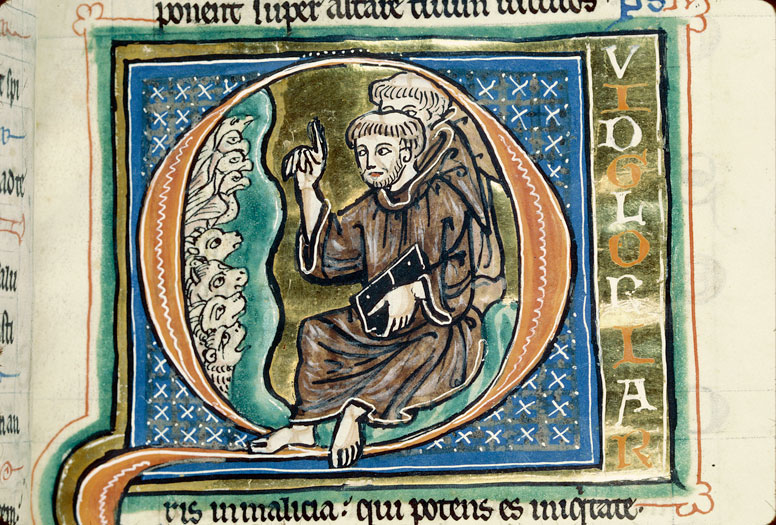 ponent super altare tuum uitulos ps
Q
V
I
D
G
L
O
R
I
A
R
ris inmalicia: qui potens es iniqtate.